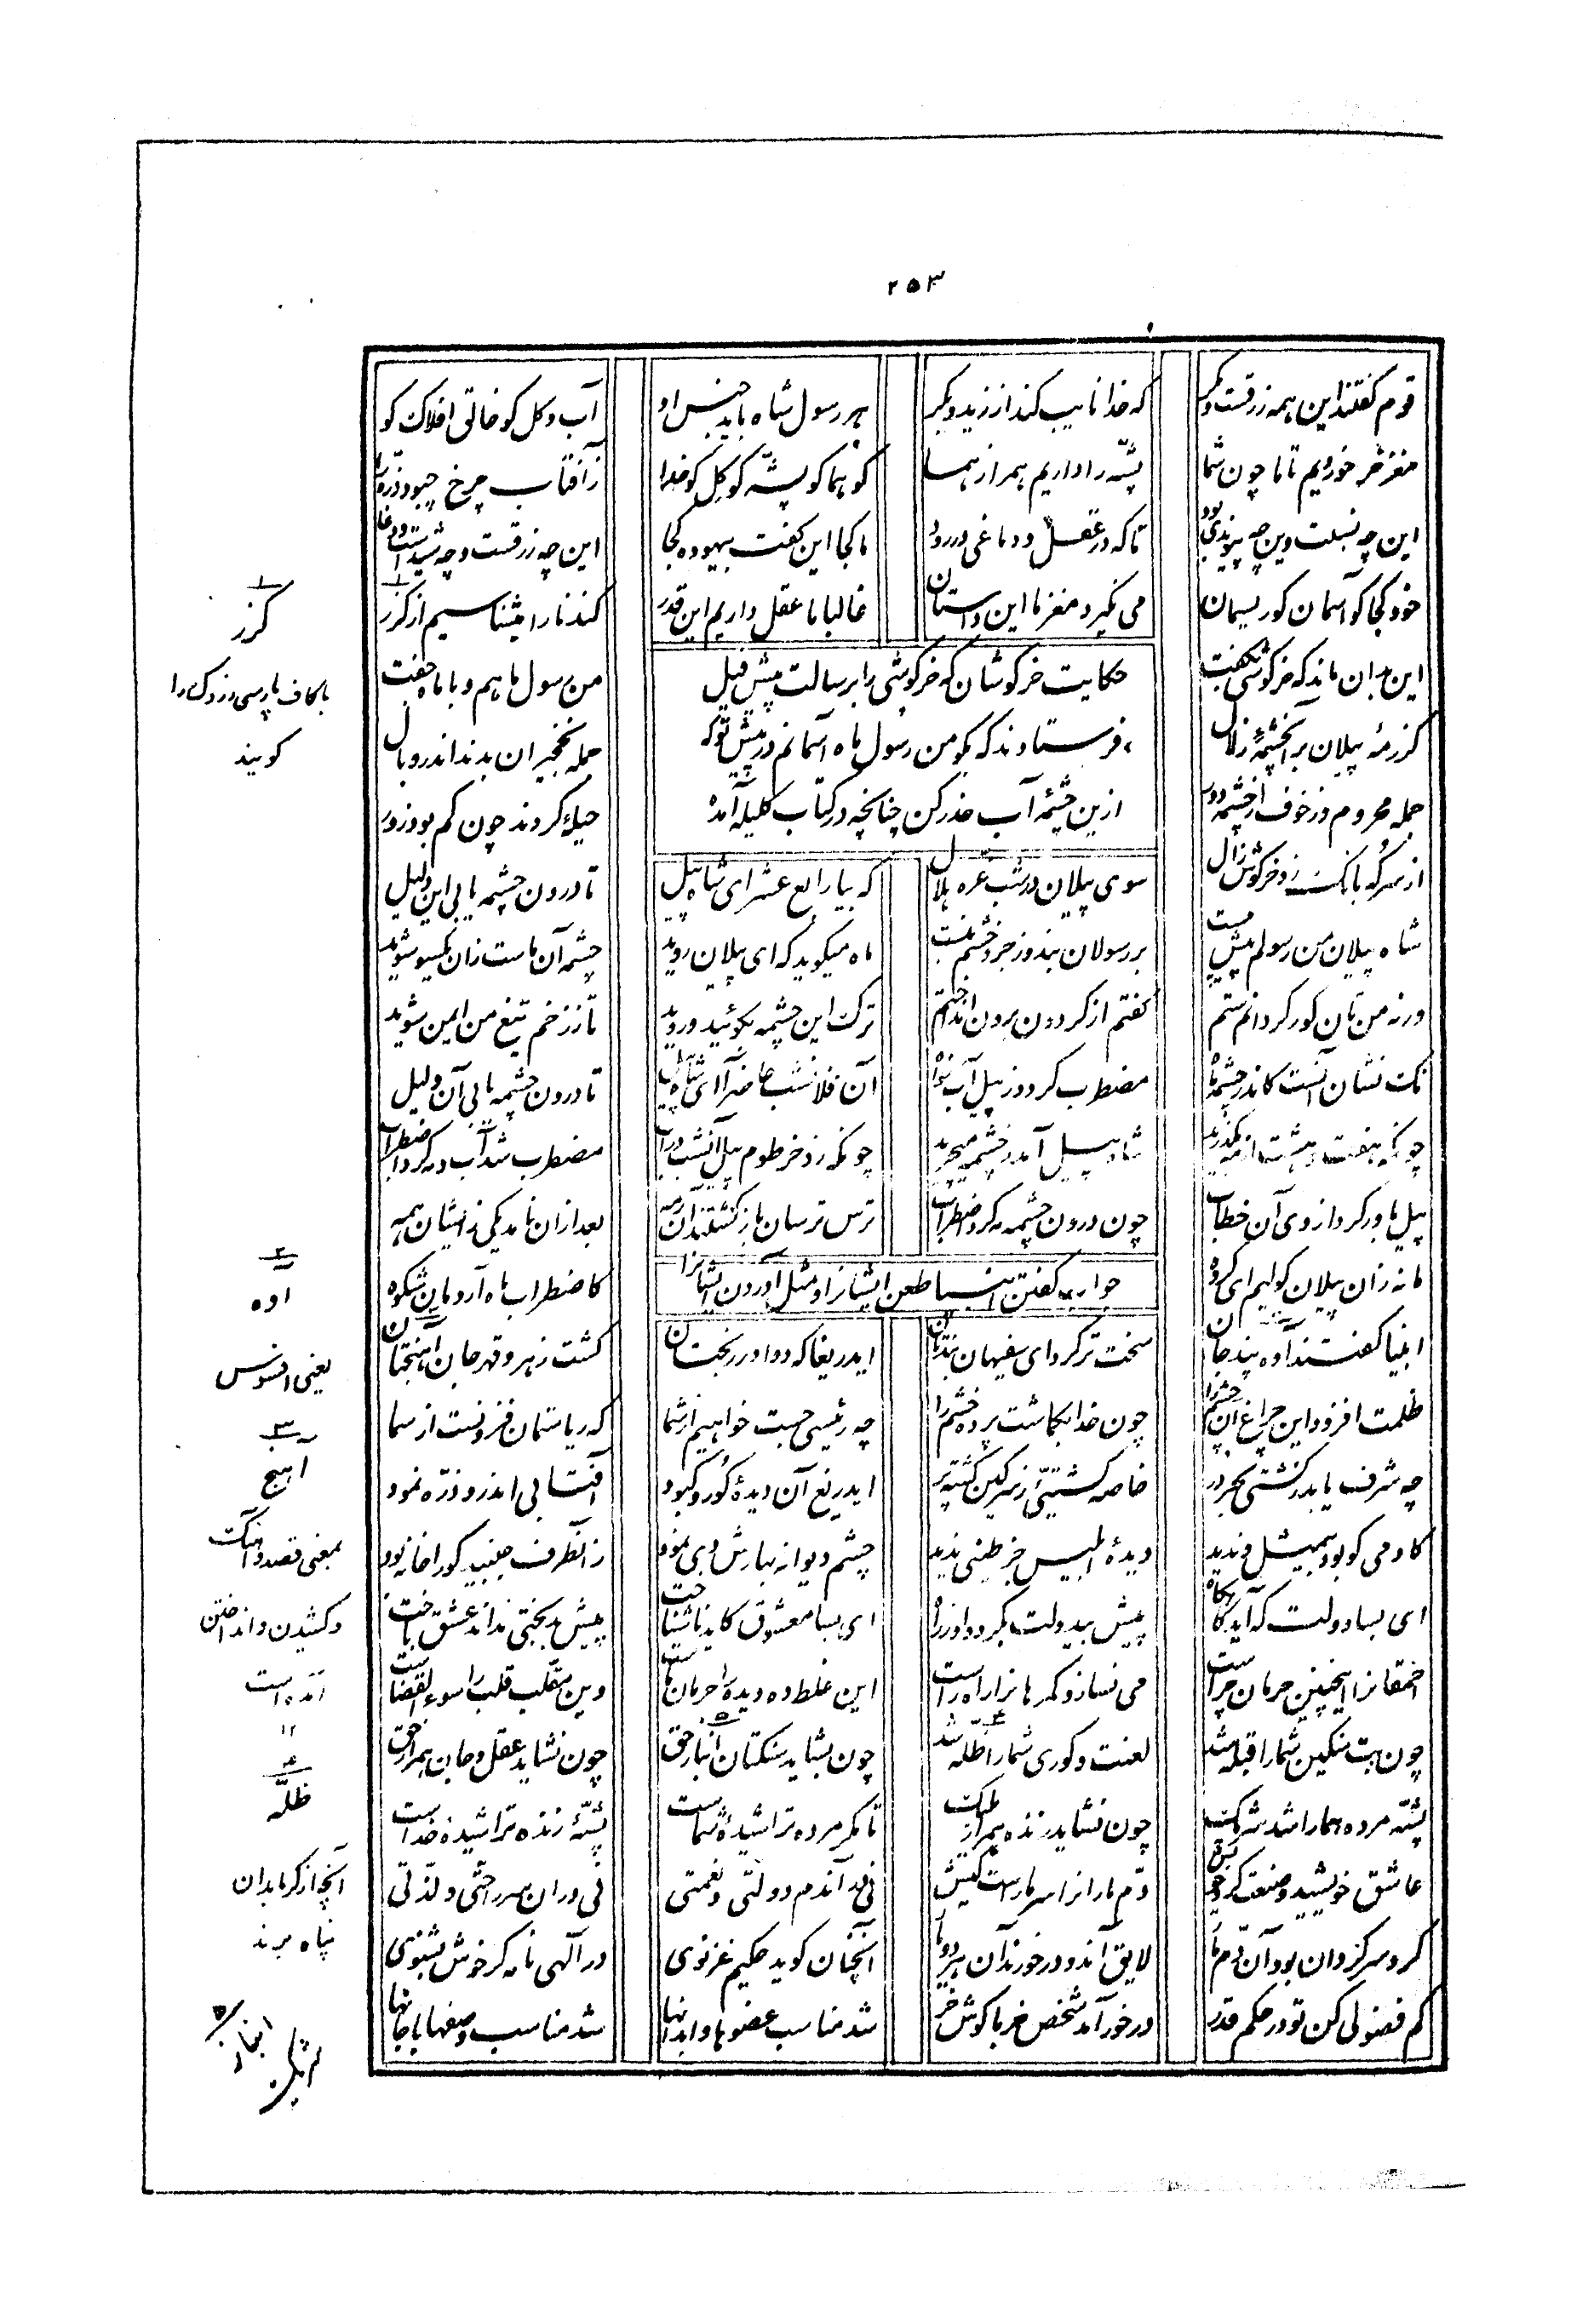 ۲۵۳
قوم گفتند این همه زرقست و مکر که خدا نایب کند از زید و بکر هر رسول شاه باید جنس او آب و گل کو خالق افلاک کو
مغز خر خوردیم تا ما چون شما پشه را داریم همراز هما کو هما کو پشه کو گل کو خدا ز آفتاب چرخ چبود ذره را
این چه نسبت وین چه پیوندی بود تا که در عقل و دماغی در رود ما کجا این گفت بیهوده کجا این چه زرقست و چه شیدست و دغا
خود کجا کو آسمان کو ریسمان می نگیرد مغز ما این داستان غالبا ما عقل داریم این قدر گندنا را می‌شناسیم از گزر
حکایت خرگوشان که خرگوشی را برسالت پیش فیل
فرستادند که بگو من رسول ماه آسمانم در پیش تو که
ازین چشمه آب حذر کن چنانچه در کتاب کلیله آمده
این بدان ماند که خرگوشی بگفت من رسول ماهم و با ماه جفت
کز رمهٔ پیلان بر آن چشمهٔ زلال جمله نخچیران بدند اندر وبال
جمله محروم و ز خوف از چشمه دور حیلهٔ کردند چون کم بود زور
از سر که بانگ زد خرگوش زال سوی پیلان در شب غره هلال که بیا رابع عشر ای شاه پیل تا درون چشمه یابی این دلیل
شاه پیلان من رسولم پیش بیست بر رسولان بند و زجر و خشم نیست ماه میگوید که ای پیلان روید چشمه آن ماست زان یکسو شوید
ورنه من تان کور گردانم ستم گفتم از گردون برون انداختم ترک این چشمه بگوئید و روید تا ز زخم تیغ من ایمن شوید
نک نشان آنست کاندر چشمه ماه مضطرب گردد ز پیل آب خواه آن فلان شب حاضر آ ای شاه پیل تا درون چشمه یابی آن دلیل
چونکه هفت و هشت از مه بگذرید شاه پیل آمد ز چشمه میچرید چونکه زد خرطوم پیل آنشب در آب مضطرب شد آب و مه کرد اضطراب
پیل باور کرد از وی آن خطاب چون درون چشمه مه کرد اضطراب ترس ترسان بازگشتند آن رمه بعد از آن نامد یکی ز ایشان همه
جواب گفتن انبیا طعن ایشانرا و مثل آوردن ایشانرا
ما نه زان پیلان گولیم ای گروه کاضطراب ماه آردمان شکوه
انبیا گفتند آوه پند جان سخت تر کرد ای سفیهان بندتان ایدریغا که دوا در رنجتان گشت زهر و قهر جان آهنجتان
ظلمت افزود این چراغ آن چشم را چون خدا بگماشت پرده خشم را چه رئیسی جست خواهیم از شما که ریاستمان فزونست از سما
چه شرف یابد ز کشتی بحر در خاصه کشتیی ز سرگین گشته پر ایدریغ آن دیدهٔ کور و کبود آفتابی اندرو ذره نمود
کادمی کو بود بیمثل و ندید دیدهٔ ابلیس جز طینی ندید چشم دیوانه بهارش دی نمود زانطرف جنبید کو را خانه بود
ای بسا دولت که آید گاه گاه پیش بیدولت بگردد او ز راه ای بسا معشوق کاید ناشناخت پیش بدبختی نداند عشق باخت
احمقانرا اینچنین حرمان چراست می نسازد گمرهانرا راه راست این غلط ده دیده را حرمان ماست وین مقلب قلب را سوء القضاست
چون بت سنگین شما را قبله شد لعنت و کوری شما را ظله شد چون بشاید سنگتان انباز حق چون نشاید عقل و جان همراز حق
پشه مرده هما را شد شریک چون نشاید زنده همراز ملیک تا مگر مرده تراشیدهٔ شماست پشهٔ زنده تراشیدهٔ خداست
عاشق خویشید و صنعت کرد خویش دم ماران را سر مارست کیش نی در آن دم دولتی و نعمتی نی در آن سر راحتی و لذتی
گرد سر گردان بود آن دم مار لایق اند و درخورند آن هر دو یار آنچنان گوید حکیم غزنوی در آلهی نامه گر خوش بشنوی
کم فضولی کن تو در حکم قدر درخور آمد شخص خر با گوش خر شد مناسب عضوها و ابدانها شد مناسب وصفها با جانها
۱
گزر
با کاف پارسی زردک را
گویند
۲
اوه
یعنی افسوس
۳
آهنج
بمعنی قصد و آهنگ
و کشیدن و انداختن
آمده است
۱۲
۴
ظلّه
آنچه از گرما بدان
پناه برند
۵
انباز
شریک